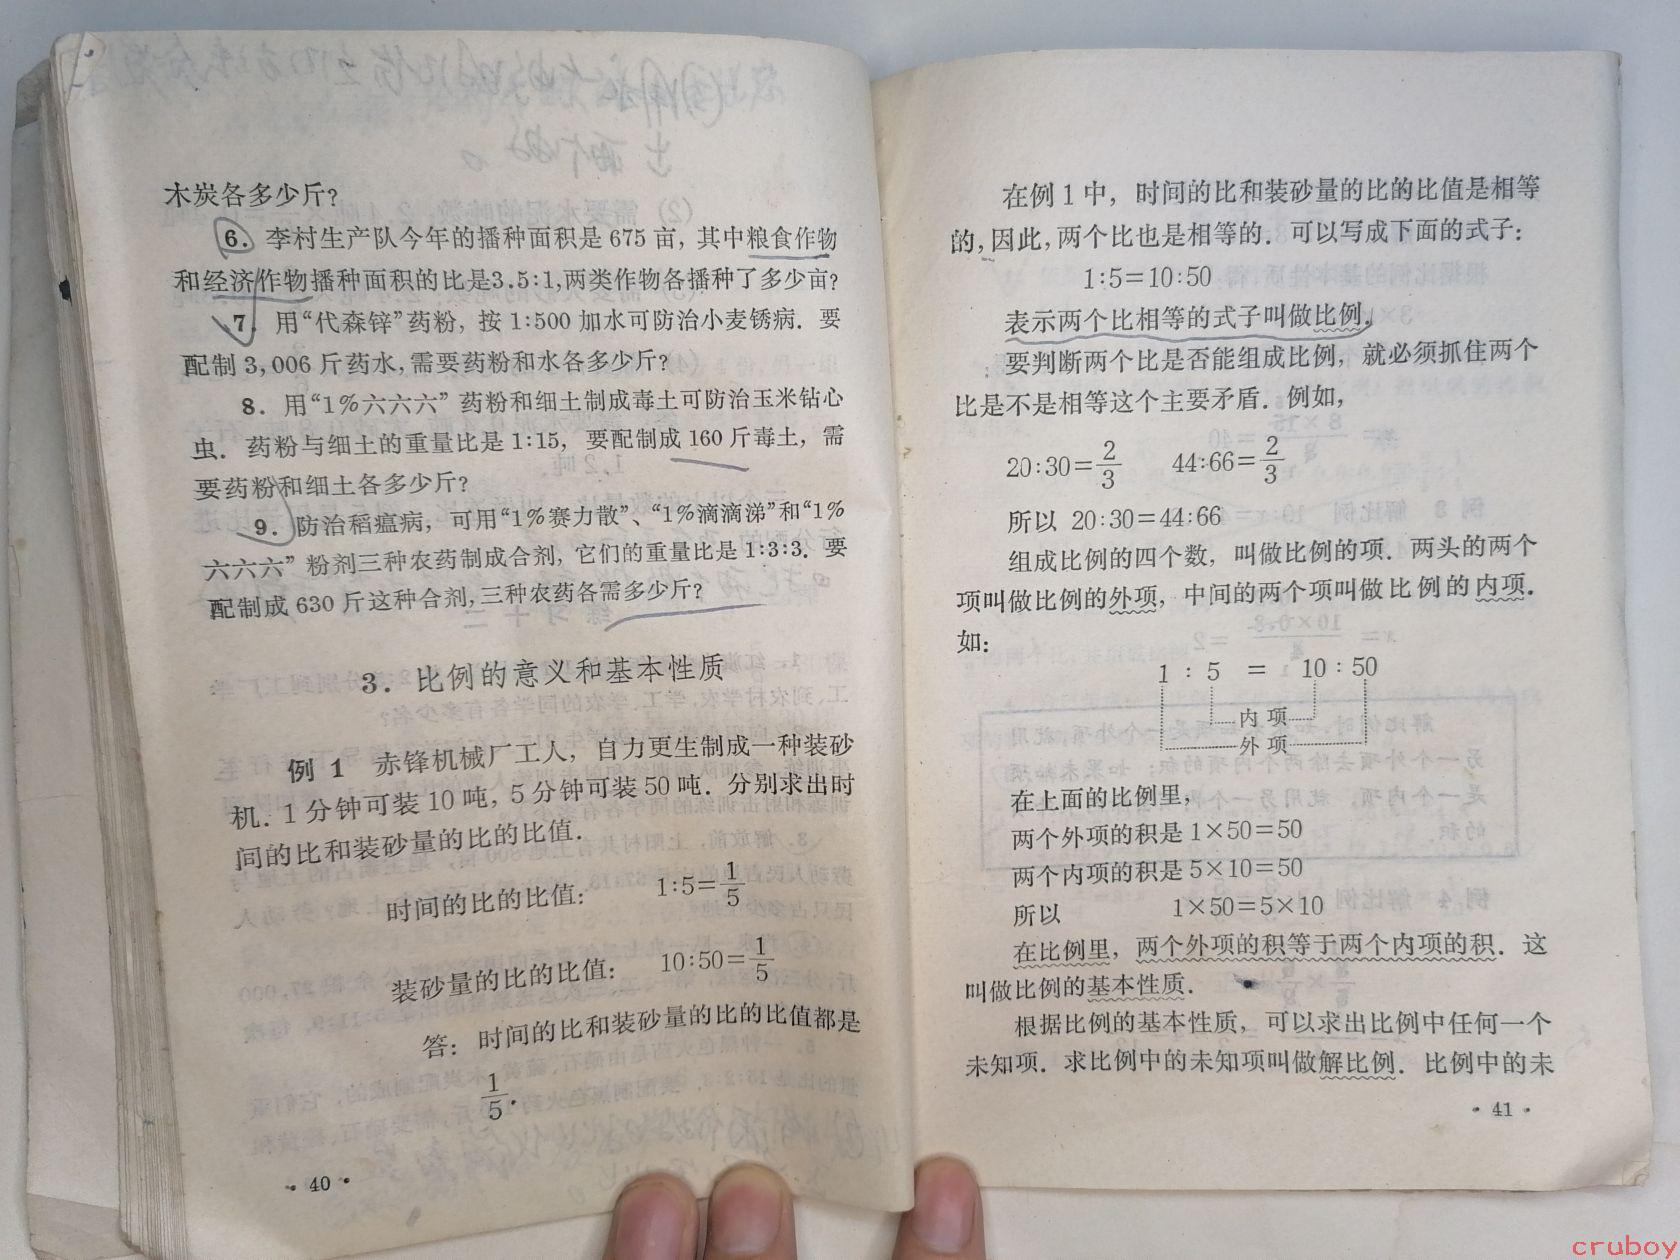 木炭各多少斤?
6. 李村生产队今年的播种面积是 675 亩, 其中粮食作物
和经济作物播种面积的比是3.5:1,两类作物各播种了多少亩?
7. 用“代森锌”药粉, 按 1:500 加水可防治小麦锈病. 要
配制 3,006 斤药水,需要药粉和水各多少斤?
8. 用“1%六六六” 药粉和细土制成毒土可防治玉米钻心
虫. 药粉与细土的重量比是 1:15, 要配制成 160 斤毒土, 需
要药粉和细土各多少斤?
9. 防治稻瘟病, 可用“1%赛力散”、“1%滴滴涕”和“1%
六六六” 粉剂三种农药制成合剂, 它们的重量比是 1:3:3. 要
配制成 630 斤这种合剂,三种农药各需多少斤?
3. 比例的意义和基本性质
例 1 赤锋机械厂工人, 自力更生制成一种装砂
机. 1 分钟可装 10 吨, 5 分钟可装 50 吨. 分别求出时
间的比和装砂量的比的比值.
时间的比的比值: 1:5=1/5
装砂量的比的比值: 10:50=1/5
答: 时间的比和装砂量的比的比值都是
1/5.
· 40 ·
在例 1 中, 时间的比和装砂量的比的比值是相等
的, 因此, 两个比也是相等的. 可以写成下面的式子:
1:5=10:50
表示两个比相等的式子叫做比例.
要判断两个比是否能组成比例, 就必须抓住两个
比是不是相等这个主要矛盾. 例如,
20:30=2/3 44:66=2/3
所以 20:30=44:66
组成比例的四个数, 叫做比例的项. 两头的两个
项叫做比例的外项, 中间的两个项叫做比例的内项.
如:
1 : 5 = 10 : 50
内项
外项
在上面的比例里,
两个外项的积是 1×50=50
两个内项的积是 5×10=50
所以 1×50=5×10
在比例里, 两个外项的积等于两个内项的积. 这
叫做比例的基本性质.
根据比例的基本性质, 可以求出比例中任何一个
未知项. 求比例中的未知项叫做解比例. 比例中的未
· 41 ·
cruboy